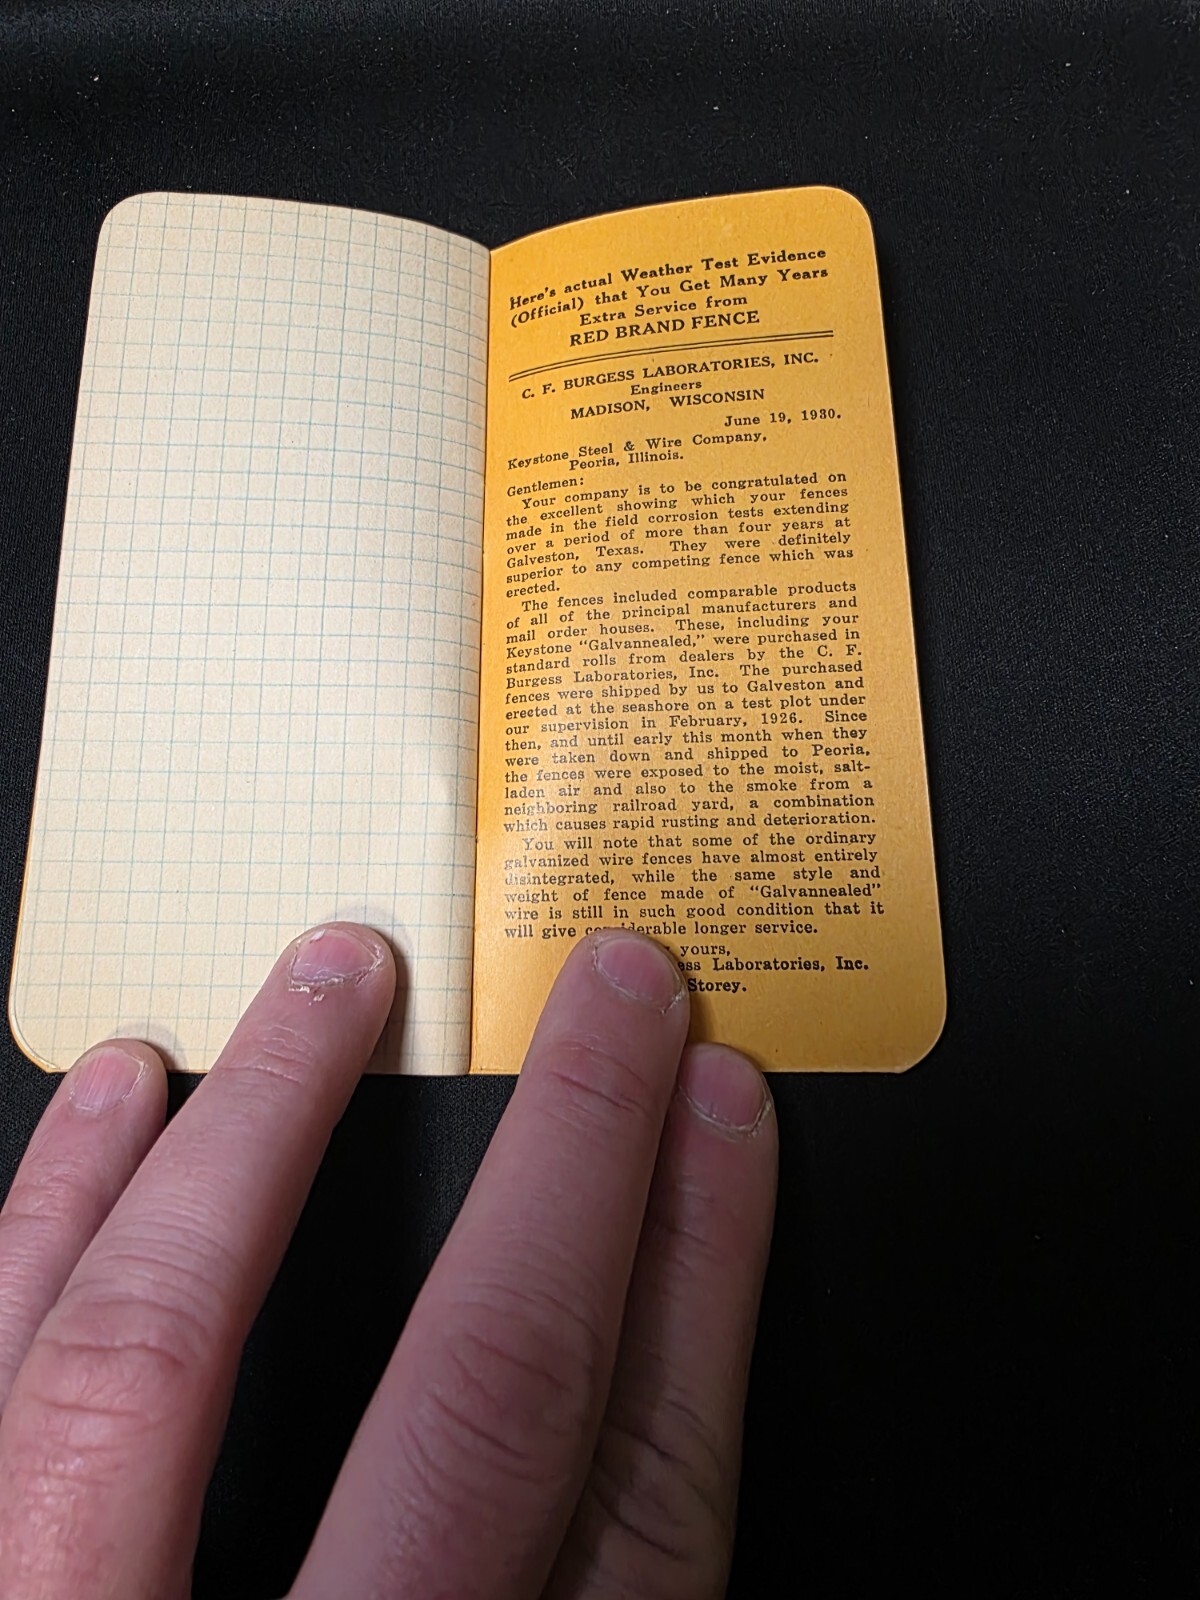 Here's actual Weather Test Evidence
(Official) that You Get Many Years
Extra Service from
RED BRAND FENCE
C. F. BURGESS LABORATORIES, INC.
Engineers
MADISON, WISCONSIN
June 19, 1930.
Keystone Steel & Wire Company,
Peoria, Illinois.
Gentlemen:
Your company is to be congratulated on
the excellent showing which your fences
made in the field corrosion tests extending
over a period of more than four years at
Galveston, Texas. They were definitely
superior to any competing fence which was
erected.
The fences included comparable products
of all of the principal manufacturers and
mail order houses. These, including your
Keystone "Galvannealed," were purchased in
standard rolls from dealers by the C. F.
Burgess Laboratories, Inc. The purchased
fences were shipped by us to Galveston and
erected at the seashore on a test plot under
our supervision in February, 1926. Since
then, and until early this month when they
were taken down and shipped to Peoria,
the fences were exposed to the moist, salt-
laden air and also to the smoke from a
neighboring railroad yard, a combination
which causes rapid rusting and deterioration.
You will note that some of the ordinary
galvanized wire fences have almost entirely
disintegrated, while the same style and
weight of fence made of "Galvannealed"
wire is still in such good condition that it
will give considerable longer service.
yours,
Laboratories, Inc.
Storey.